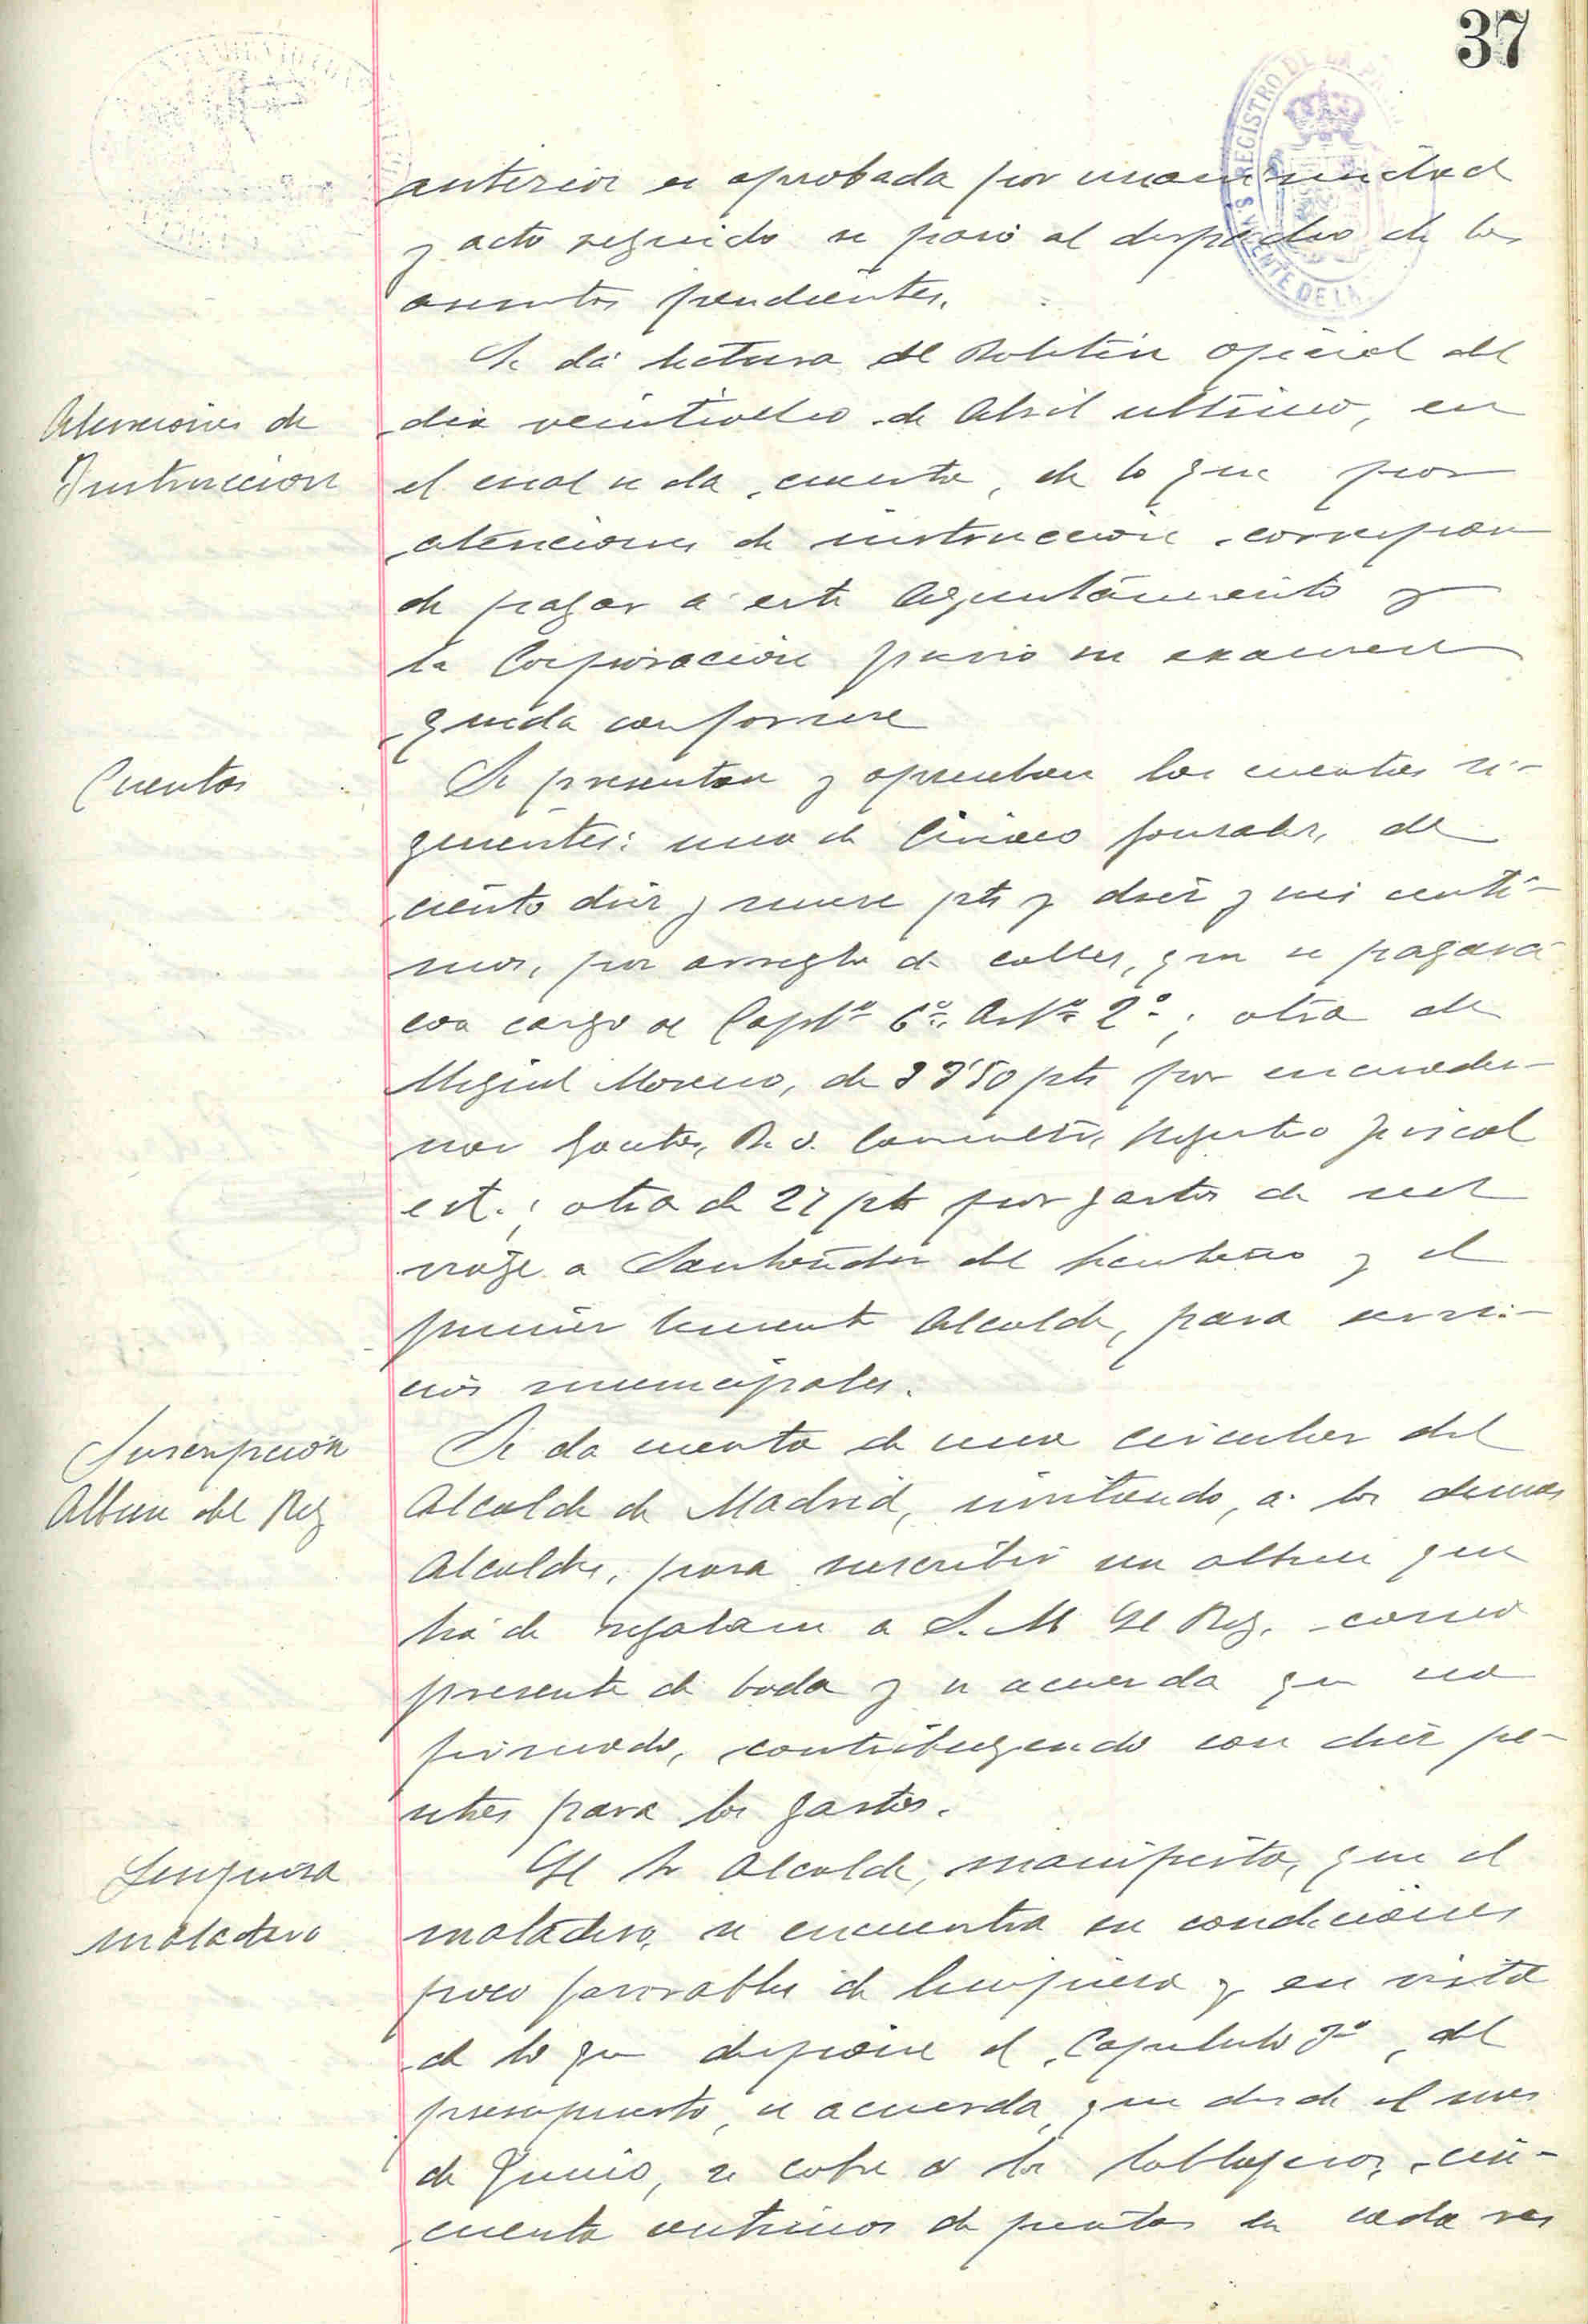 37
anterior es aprobada por unanimidad
y acto seguido se pasó al despacho de los
asuntos pendientes.
Atenciones de
Instruccion
Se dá lectura del Boletin oficial del
dia veintiocho de Abril ultimo, en
el cual se da cuenta, de lo que por
atenciones de instruccion correspon
de pagar a este Ayuntamiento y
la Corporacion previo su examen
queda conforme
Cuentas
Se presentan y aprueban las cuentas si-
guientes: una de Ciriaco Gonzalez, de
ciento diez y nueve pts y diez y seis centi-
mos, por arreglo de calles, que se pagará
con cargo al Captº 6º Artº 2º; otra de
Miguel Moreno, de 33'50 pts por encuader-
nar Gacetas, B. O. Consultor, Registro fiscal
ect.; otra de 27 pts por gastos de un
viaje a Santander del Secretario y el
primer teniente Alcalde, para servi-
cios municipales.
Suscripcion
Album del Rey
Se da cuenta de una circular del
Alcalde de Madrid, invitando, a los demas
Alcaldes, para suscribir un album que
há de regalarse a S. M. El Rey, como
presente de boda y se acuerda que sea
firmado, contribuyendo con diez pe-
setas para los gastos.
Limpieza
matadero
El Sr Alcalde, manifiesta, que el
matadero, se encuentra en condiciones
poco favorables de limpieza y en vista
de lo que dispone el Capitulo 3º, del
presupuesto, se acuerda, que desde el mes
de Junio, se cobre a los tablajeros, cin-
cuenta centimos de pesetas en cada res
REGISTRO DE LA
S. V
ENTE DE LA